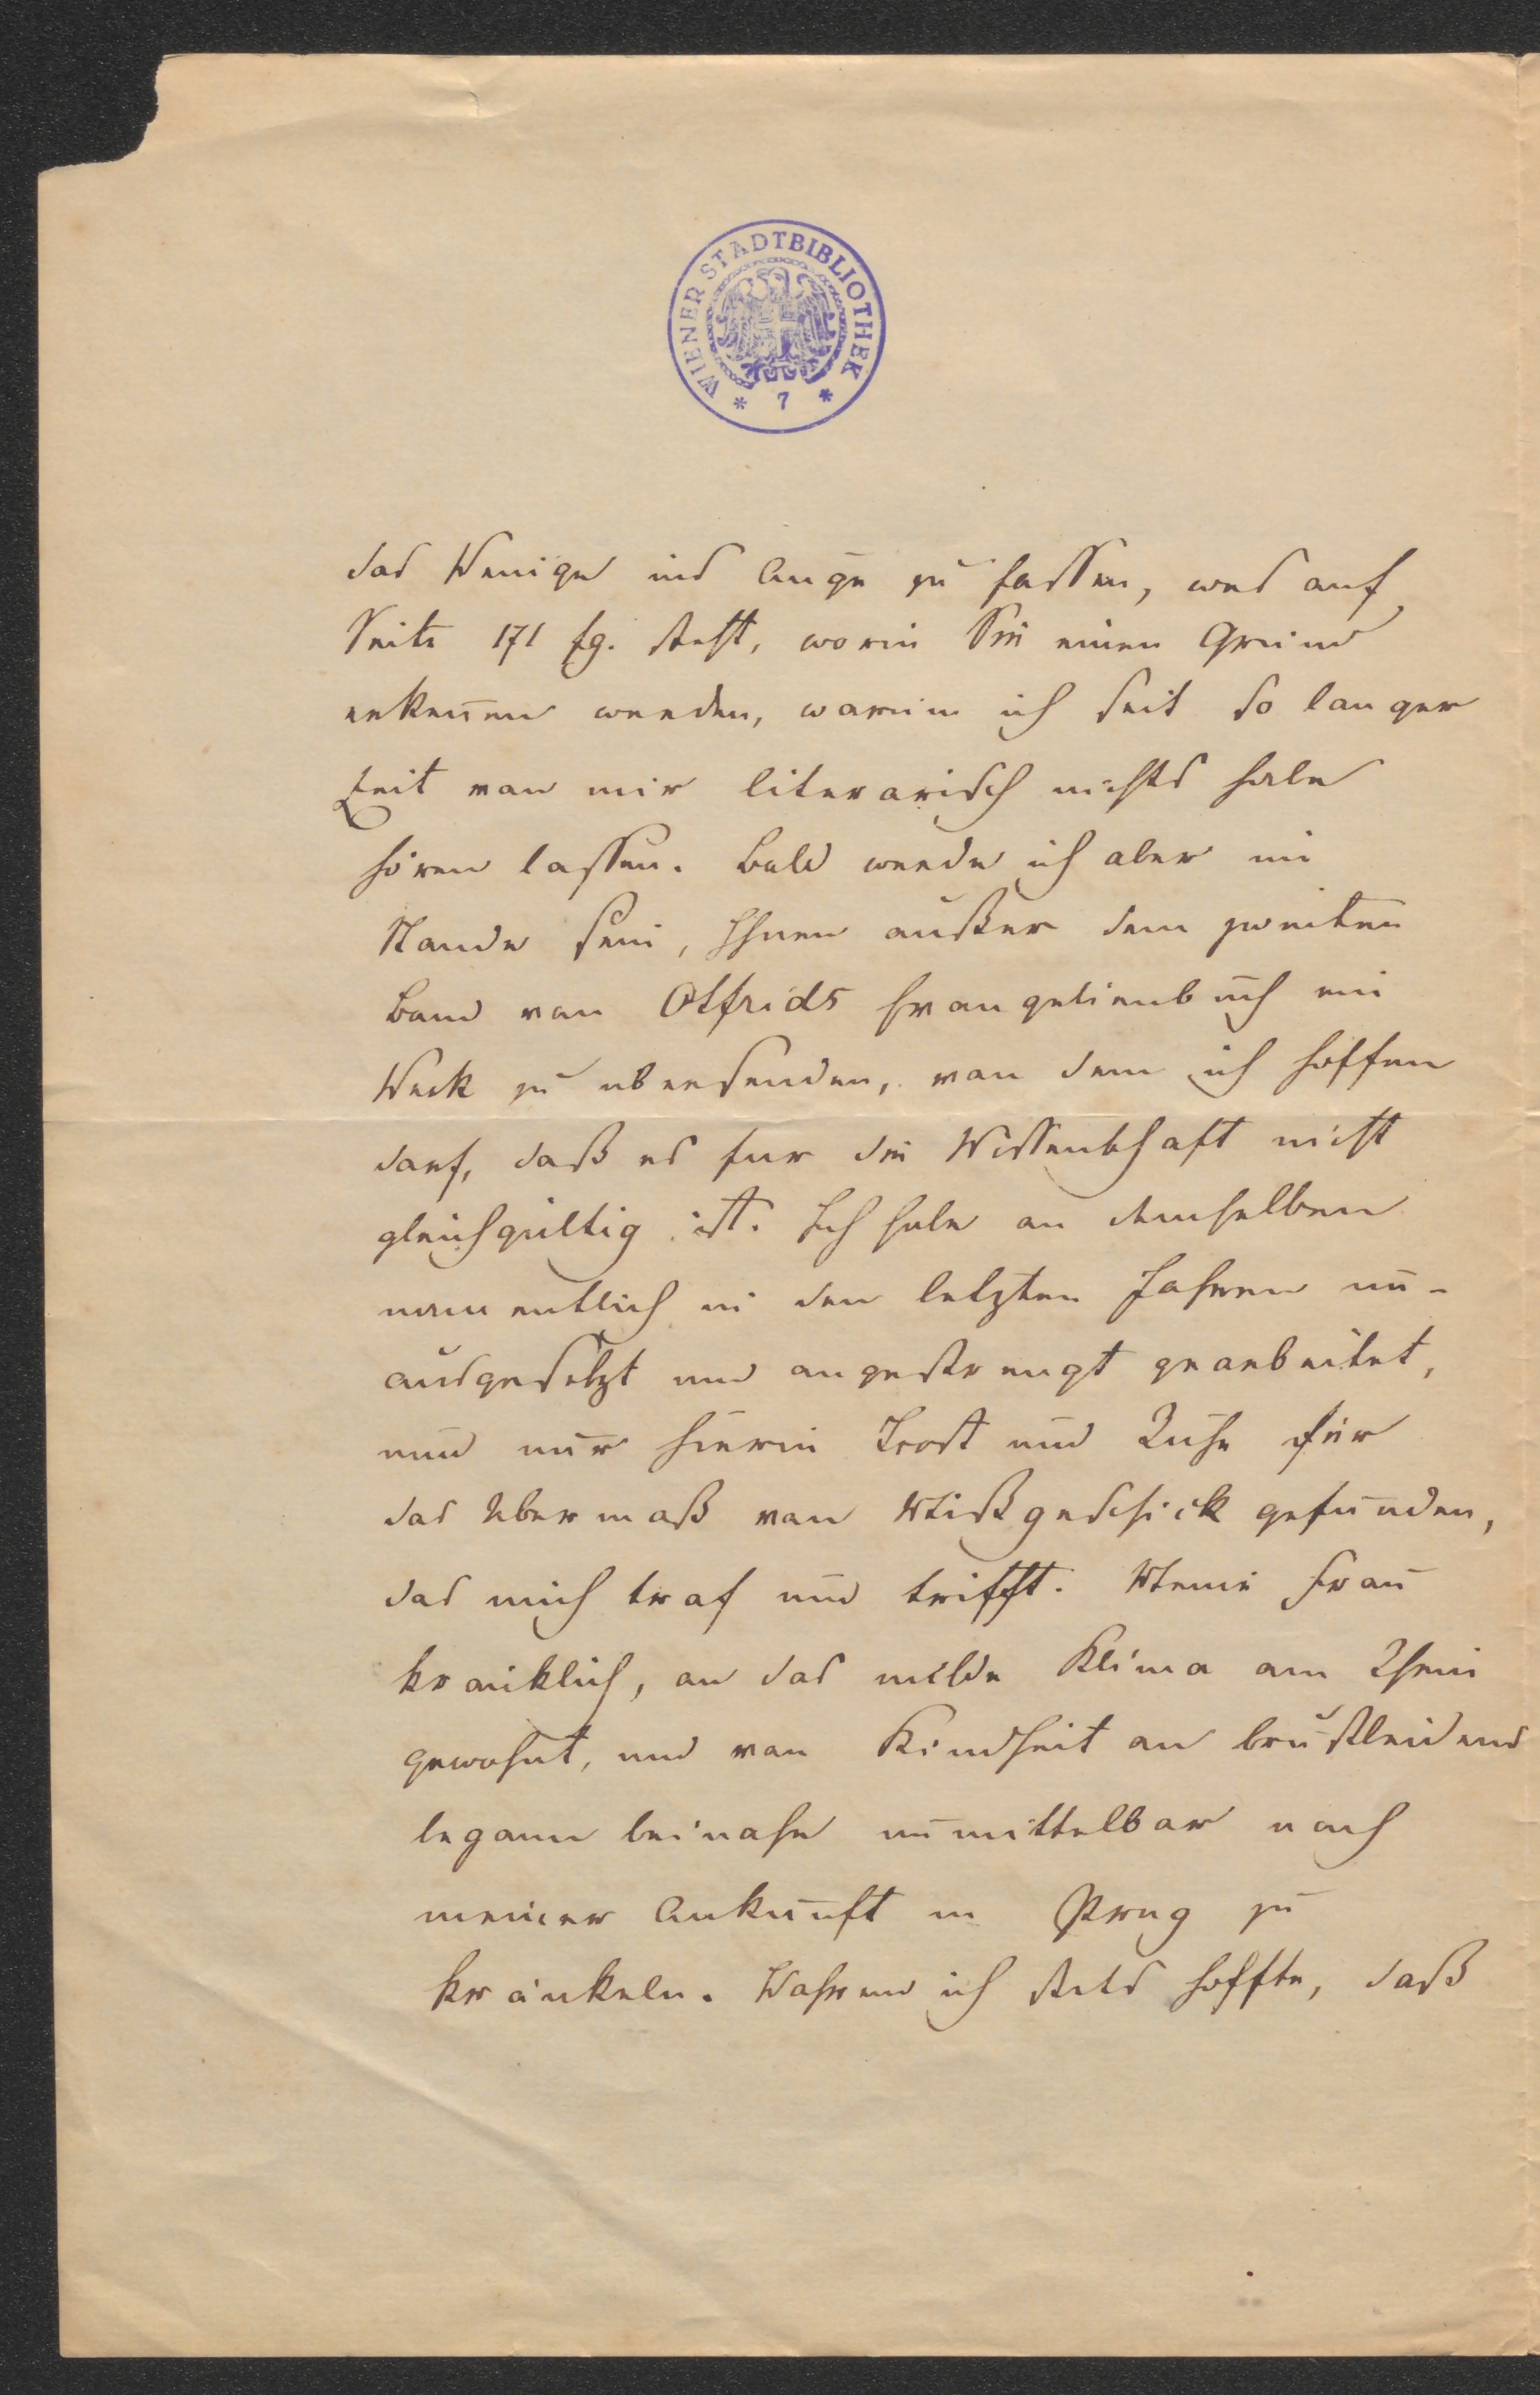 WIENER STADTBIBLIOTHEK
* 7 *
das Wenige ins Auge zu fassen, was auf
Seite 171 fg. steht, worin Sie einen Grund
erkennen werden, warum ich seit so langer
Zeit von mir literarisch nichts habe
hören lassen. Bald werde ich aber im
Stande sein, Ihnen außer dem zweiten
Band von Otfrids Evangelienbuch ein
Werk zu übersenden, von dem ich hoffen
darf, daß es für die Wissenschaft nicht
gleichgültig ist. Ich habe an demselben
namentlich in den letzten Jahren un-
ausgesetzt und angestrengt gearbeitet,
und nur hierin Trost und Ruhe für
das Übermaß von Mißgeschick gefunden,
das mich traf und trifft. Meine Frau
kränklich, an das milde Klima am Rhein
gewohnt, und von Kindheit an brustleidend
begann beinahe unmittelbar nach
meiner Ankunft in Prag zu
kränkeln. Während ich stets hoffte, daß